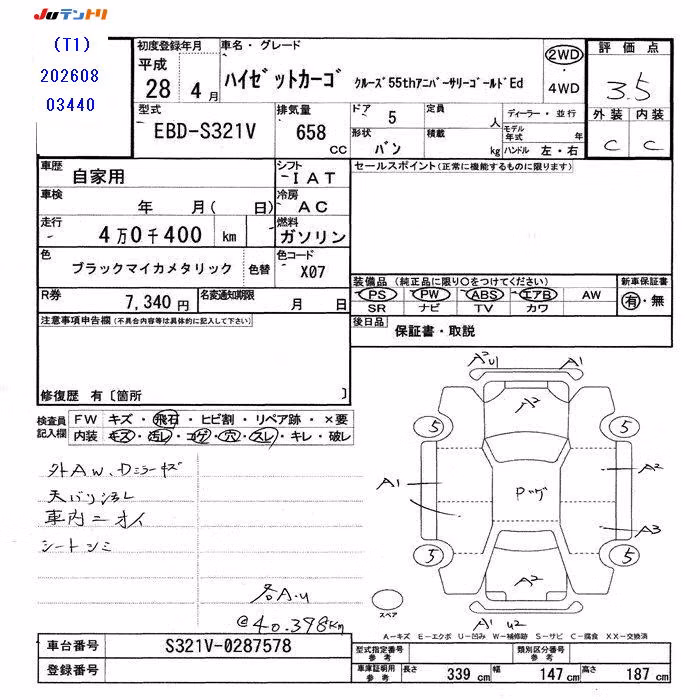 Juテントリ
(T1)
202608
03440
初度登録年月
平成
28 4 月
車名・グレード
ハイゼットカーゴ クルーズ55thアニバーサリーゴールドEd
2WD
4WD
評価点
3.5
外装 内装
C C
型式
EBD-S321V
排気量
658 cc
ドア 5
形状 バン
定員 人
積載 kg
ディーラー・並行
モデル年式 年
ハンドル 左・右
車歴 自家用
シフト IAT
車検 年 月( 日)
冷房 AC
走行 4万0千400 km
燃料 ガソリン
色 ブラックマイカメタリック 色替
色コード X07
R券 7,340 円
名変通知期限 月 日
セールスポイント(正常に機能するものに限ります)
装備品 (純正品に限り○をつけてください)
PS PW ABS エアB AW
SR ナビ TV カワ
新車保証書
有・無
後日品 保証書・取説
注意事項申告欄(不具合内容等は具体的に記入して下さい)
修復歴 有〔箇所 〕
検査員記入欄
FW キズ・飛石・ヒビ割・リペア跡・×要
内装 キズ・汚レ・コゲ・穴・スレ・キレ・破レ
外AW、Dミラーキズ
天バリシミ
車内ニオイ
シートシミ
各A.u
@40.398km
A2U1 A1
A2
5 5
A1 A2
Pツゲ
A3
5 5
A2
A1 U2
スペア
A-キズ E-エクボ U-凹み W-補修跡 S-サビ C-腐食 XX-交換済
車台番号 S321V-0287578
登録番号
型式指定番号 参考
類別区分番号 参考
車庫証明用 参考
長さ 339 cm 幅 147 cm 高さ 187 cm